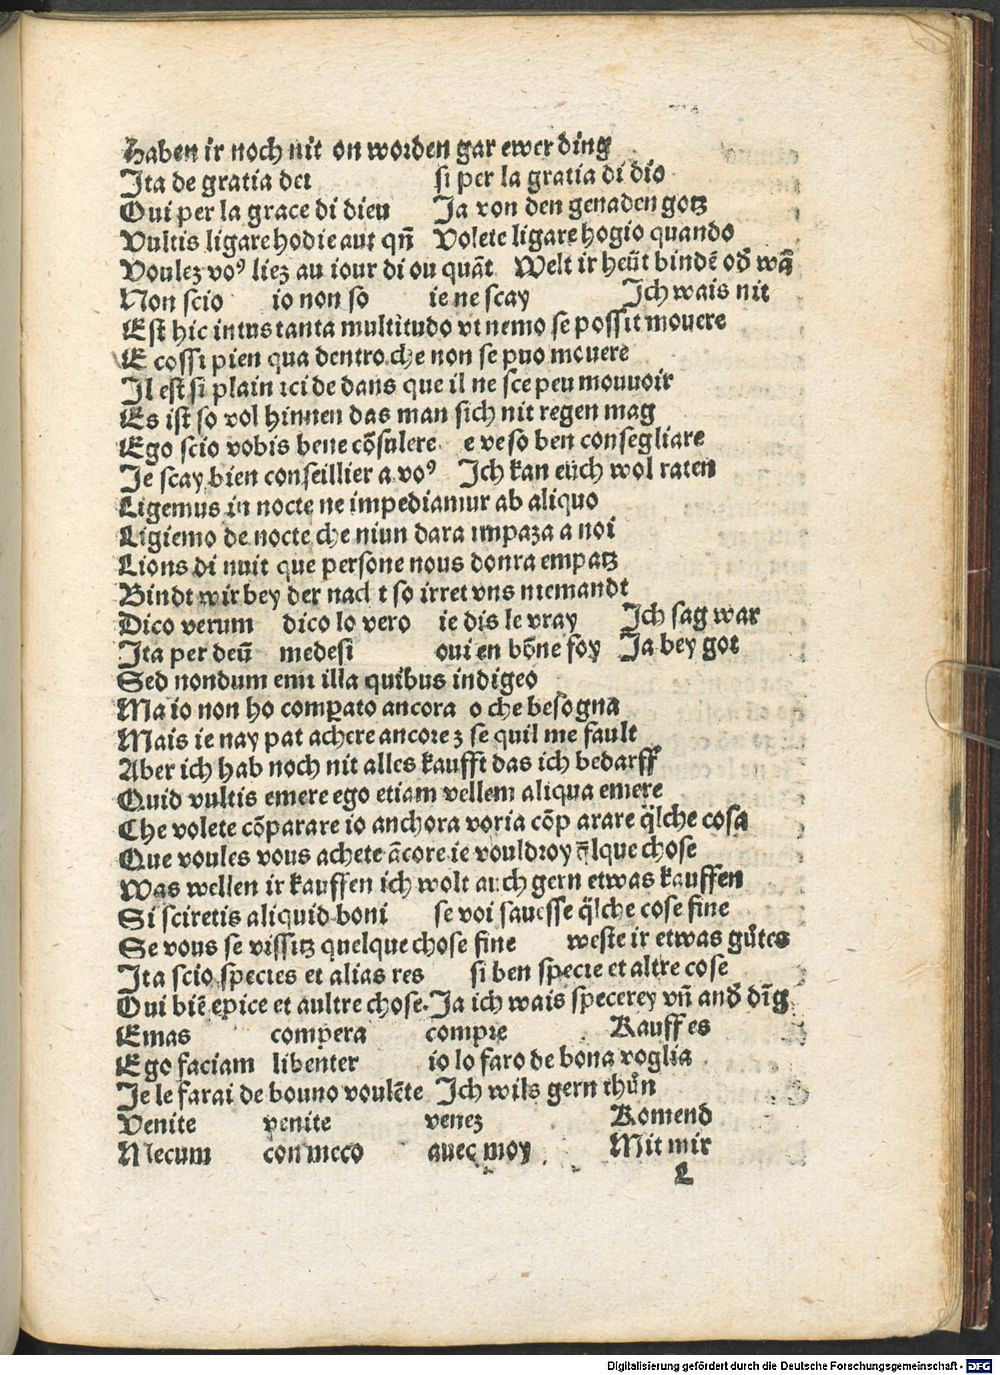 Haben ir noch nit on worden gar ewer ding
Ita de gratia dei si per la gratia di dio
Oui per la grace di dieu Ja von den genaden gotz
Vultis ligare hodie aut qñ Volete ligare hogio quando
Voulez voꝰ liez au iour di ou quãt Welt ir heüt bindẽ od̃ wã
Non scio io non so ie ne scay Ich wais nit
Est hic intus tanta multitudo vt nemo se possit mouere
E cossi pien qua dentro che non se puo mouere
Il est si plain ici de dans que il ne sce peu mouuoir
Es ist so vol hinnen das man sich nit regen mag
Ego scio vobis bene cõsulere e ve so ben consegliare
Je scay bien conseillier a voꝰ Ich kan eüch wol raten
Ligemus in nocte ne impediamur ab aliquo
Ligiemo de nocte che niun dara impaza a noi
Lions di nuit que persone nous donra empatz
Bindt wir bey der nacht so irret vns niemandt
Dico verum dico lo vero ie dis le vray Ich sag war
Ita per deũ medesi oui en bõne foy Ja bey got
Sed nondum emi illa quibus indigeo
Ma io non ho comꝑato ancora o che besogna
Mais ie nay pat achere ancore z se quil me fault
Aber ich hab noch nit alles kaufft das ich bedarff
Quid vultis emere ego etiam vellem aliqua emere
Che volete cõparare io anchora voria cõp arare q̃lche cosa
Que voules vous achete ãcore ie vouldroy q̃lque chose
Was wellen ir kauffen ich wolt auch gern etwas kauffen
Si sciretis aliquid boni se voi sauesse q̃lche cose fine
Se vous se vissitz quelque chose fine weste ir etwas gůtes
Ita scio species et alias res si ben specie et altre cose
Oui biẽ epice et aultre chose. Ja ich wais specerey vñ and̃ dĩg
Emas compera compre Kauff es
Ego faciam libenter io lo faro de bona voglia
Je le farai de bouno voulẽte Ich wils gern thůn
Venite venite venez Komend
Mecum con meco auec moy Mit mir
L
Digitalisierung gefördert durch die Deutsche Forschungsgemeinschaft - DFG